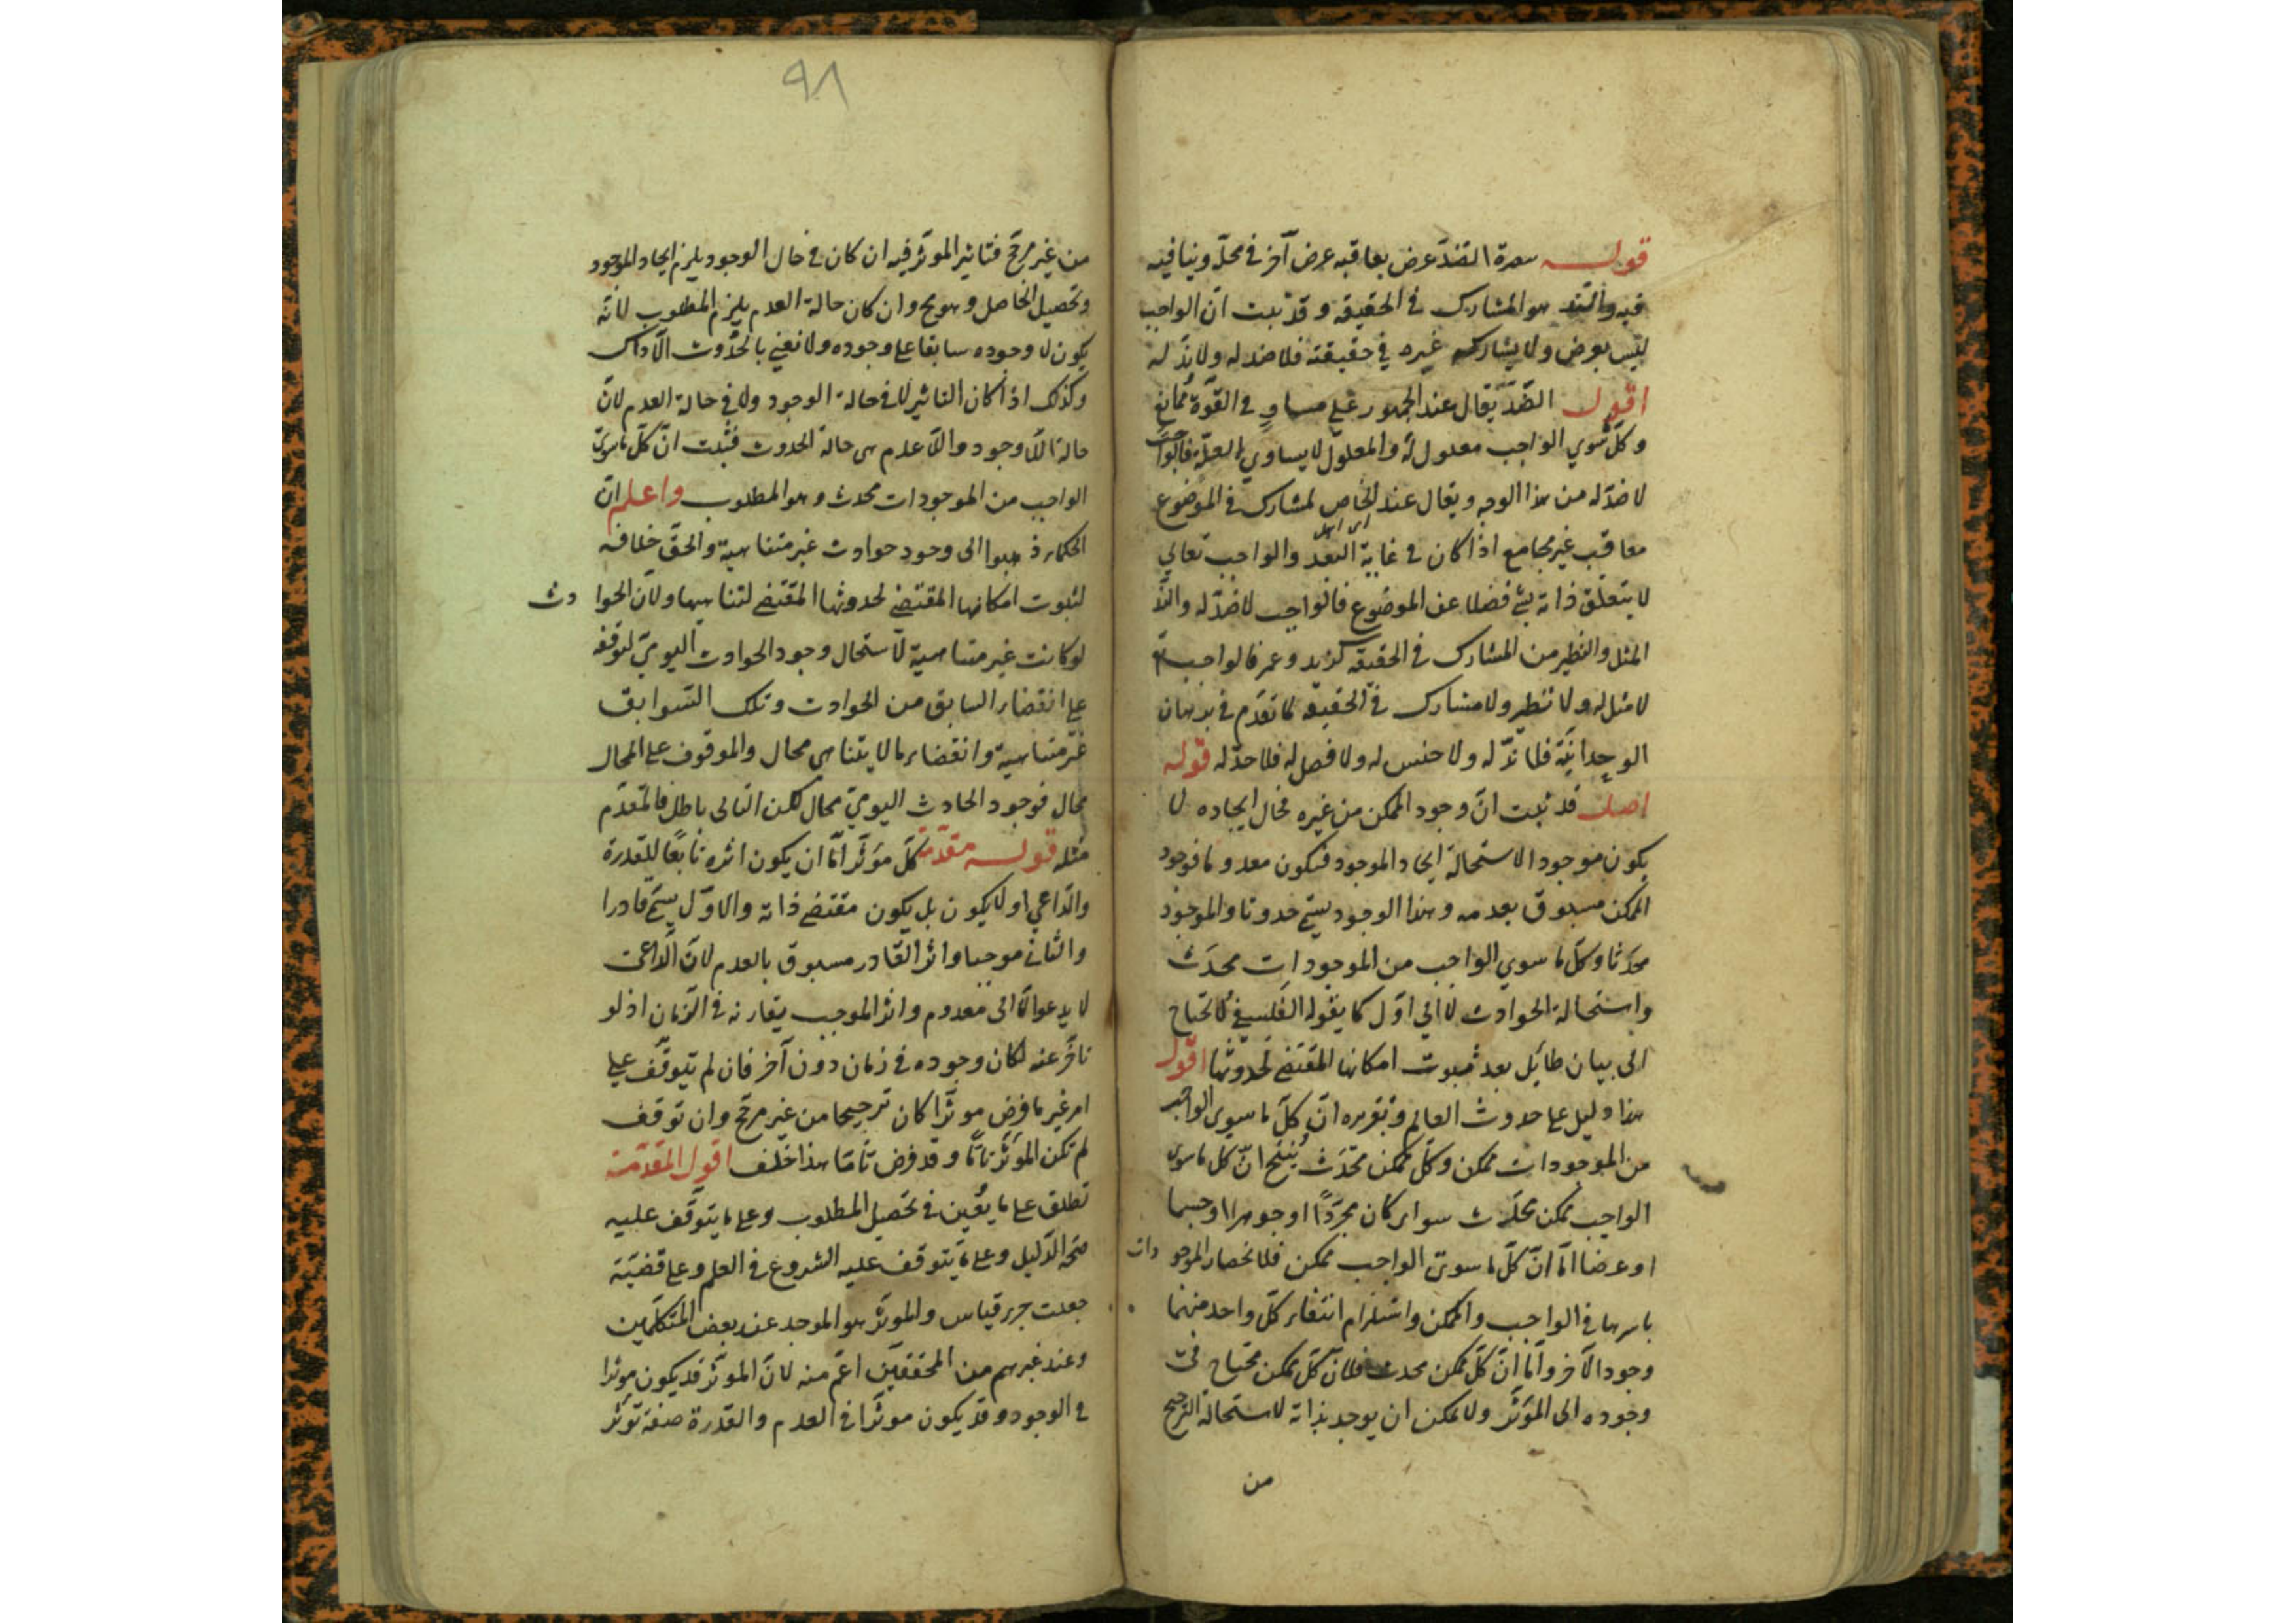 قوله سمرة الضد عرض يعاقبه عرض آخر في محله وينافيه
فيه والند هو المشارك في الحقيقة وقد ثبت ان الواجب
ليس بعرض ولا يشاركه غيره في حقيقته فلا ضد له ولا ند له
اقول الضد يقال عند الجمهور علي مساو في القوة ممانع
وكل سوي الواجب معلول له والمعلول لا يساوي العلة فالواجب
لا ضد له من هذا الوجه ويقال عند الخاص لمشارك في الموضوع
معاقب غير مجامع اذا كان في غاية البعد والواجب تعالي
لا يتعلق ذاته بشئ فضلا عن الموضوع فالواجب لا ضد له والند
المثل والنظير من المشارك في الحقيقة كزيد وعمر فالواجب تع
لا مثل له ولا نظير ولا مشارك في الحقيقة لما تقدم في برهان
الوحدانية فلا ند له ولا جنس له ولا فصل له فلا حد له قوله
اصل قد ثبت ان وجود الممكن من غيره فحال ايجاده لا
يكون موجودا لاستحالة ايجاد الموجود فيكون معدوما فوجود
الممكن مسبوق بعدمه وهذا الوجود يسمى حدوثا والموجود
محدثا وكل ما سوي الواجب من الموجودات محدث
واستحالة الحوادث لا الي اول كما يقوله الفلسفي لا تحتاج
الى بيان طائل بعد ثبوت امكانها المقتضي لحدوثها اقول
هذا دليل على حدوث العالم وتقريره ان كل ما سوى الواجب
من الموجودات ممكن وكل ممكن محدث ينتج ان كل ما سوى
الواجب ممكن محدث سواء كان مجردا او جوهرا او جسما
او عرضا اما ان كل ما سوى الواجب ممكن فلانحصار الموجودات
باسرها في الواجب والممكن واستلزام انتفاء كل واحد منهما
وجود الآخر واما ان كل ممكن محدث فلان كل ممكن محتاج في
وجوده الى المؤثر ولا يمكن ان يوجد بذاته لاستحالة الترجيح
من
٩٨
من غير مرجح فتاثير المؤثر فيه ان كان في حال الوجود يلزم ايجاد الموجود
وتحصيل الحاصل وهو مح وان كان حالة العدم يلزم المطلوب لانه
يكون لا وجوده سابقا على وجوده ولا نعني بالحدوث الا ذاك
وكذلك اذا كان التاثير لا في حالة الوجود ولا في حالة العدم لان
حالة اللاوجود واللاعدم هي حالة الحدوث فثبت ان كل ما سوى
الواجب من الموجودات محدث وهو المطلوب واعلم ان
الحكماء ذهبوا الى وجود حوادث غير متناهية والحق خلافه
لثبوت امكانها المقتضي لحدوثها المقتضي لتناهيها ولان الحوادث
لو كانت غير متناهية لاستحال وجود الحوادث اليومي لتوقفه
على انقضاء السابق من الحوادث وتلك السوابق
غير متناهية وانقضاء ما لا يتناهى محال والموقوف على المحال
محال فوجود الحادث اليومي محال لكن التالى باطل فالمقدم
مثله قوله مقدمة كل مؤثر اما ان يكون اثره تابعا للقدرة
والداعي او لا يكون بل يكون مقتضي ذاته والاول يسمى قادرا
والثاني موجبا واثر القادر مسبوق بالعدم لان الداعى
لا يدعو الا الى معدوم واثر الموجب يقارنه في الزمان اذ لو
تاخر عنه لكان وجوده في زمان دون آخر فان لم يتوقف علي
امر غير ما فرض مؤثرا كان ترجيحا من غير مرجح وان توقف
لم تكن المؤثر تاما وقد فرض تاما هذا خلف اقول المقدمة
تطلق على ما يعين في تحصيل المطلوب وعلى ما يتوقف عليه
صحة الدليل وعلى ما يتوقف عليه الشروع في العلم وعلى قضية
جعلت جزء قياس والمؤثر هو الموجد عند بعض المتكلمين
وعند غيرهم من المحققين اعم منه لان المؤثر قد يكون مؤثرا
في الوجود وقد يكون مؤثرا في العدم والقدرة صفة تؤثر